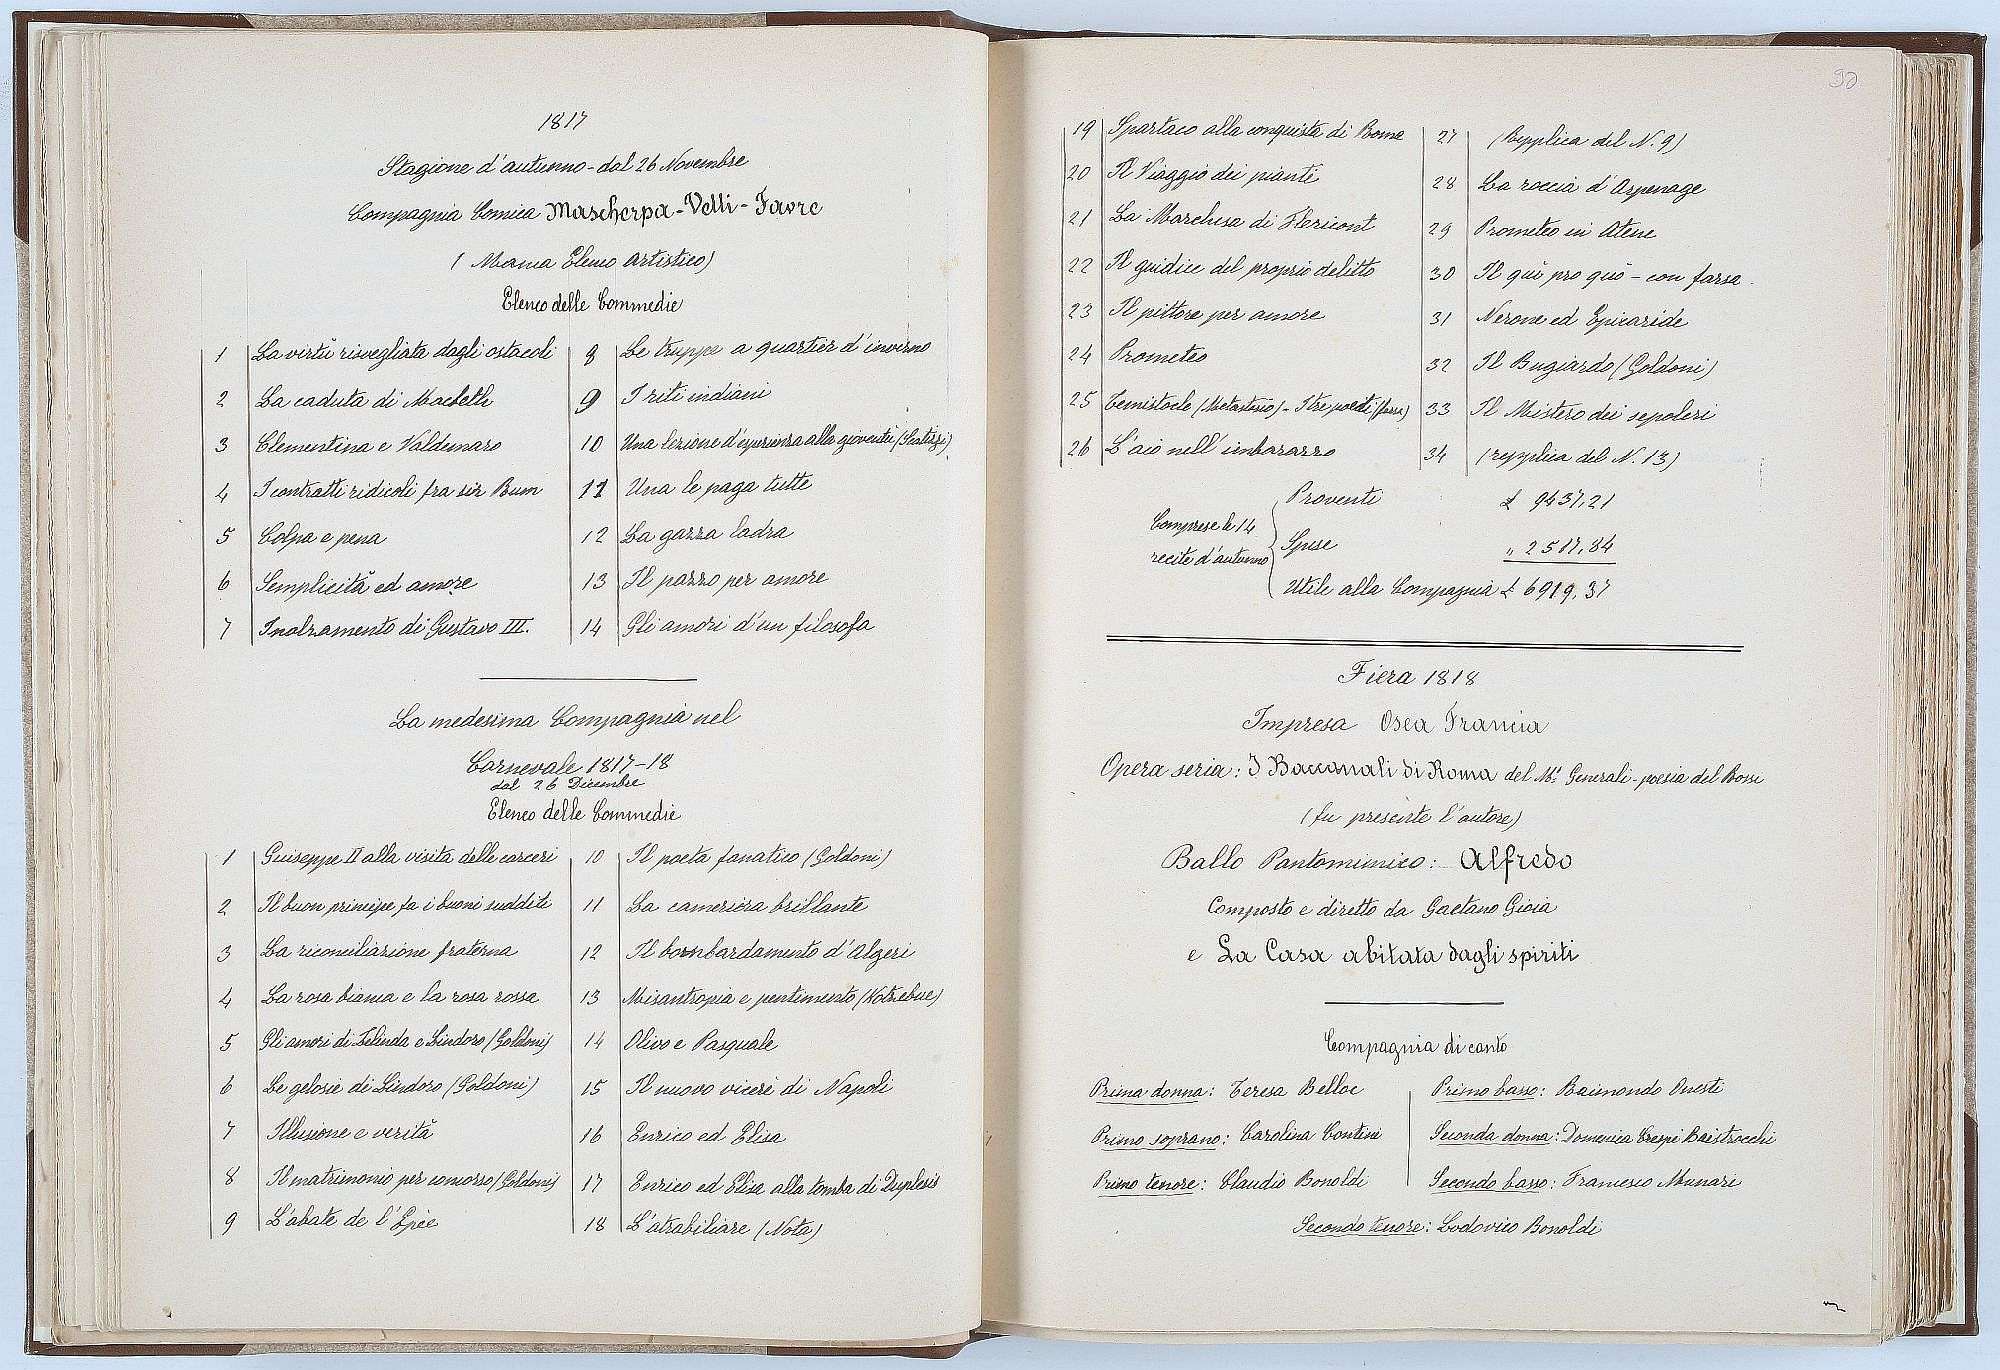 1817
Stagione d'autunno - dal 26 Novembre
Compagnia Comica Mascherpa - Velli - Favre
(Manca Elenco Artistico)
Elenco delle Commedie
1 La virtù risvegliata dagli ostacoli
2 La caduta di Macbeth
3 Clementina e Valdemaro
4 I contratti ridicoli fra sir Bum
5 Colpa e pena
6 Semplicità ed amore
7 Inalzamento di Gustavo III.
8 Le truppe a quartier d'inverno
9 I riti indiani
10 Una lezione d'esperienza alla gioventù
11 Una le paga tutte
12 La gazza ladra
13 Il pazzo per amore
14 Gli amori d'un filosofo
La medesima Compagnia nel
Carnevale 1817-18
dal 26 Dicembre
Elenco delle Commedie
1 Guiseppe II alla visita delle carceri
2 Il buon principe fa i buoni sudditi
3 La riconciliazione fraterna
4 La rosa bianca e la rosa rossa
5 Gli amori di Zelinda e Lindoro (Goldoni)
6 Le gelosie di Lindoro (Goldoni)
7 Illusione e verità
8 Il matrimonio per concorso (Goldoni)
9 L'abate de l'Epèe
10 Il poeta fanatico (Goldoni)
11 La cameriera brillante
12 Il bombardamento d'Algeri
13 Misantropia e pentimento (Kotzebue)
14 Olivo e Pasquale
15 Il nuovo vicerè di Napoli
16 Enrico ed Elisa
17 Enrico ed Elisa alla tomba di Duplesis
18 L'atrabiliare (Nota)
90
19 Spartaco alla conquista di Roma
20 Il Viaggio dei pianti
21 La Marchesa di Floricont
22 Il guidice del proprio delitto
23 Il pittore per amore
24 Prometeo
25 Temistocle (Metastasio) - I tre poeti (farsa)
26 L'aio nell'imbarazzo
27 (Repplica del N. 9)
28 La roccia d'Arpenage
29 Prometeo in Atene
30 Il qui pro quò - con farsa.
31 Nerone ed Epicaride
32 Il Bugiardo (Goldoni)
33 Il Mistero dei sepolcri
34 (repplica del N. 13)
Comprese le 14
recite d'autunno
Proventi £ 9437,21
Spese " 2517,84
Utile alla Compagnia £ 6919,37
Fiera 1818
Impresa Osea Francia
Opera seria: I Baccanali di Roma del Mº Generali - poesia del Rossi
(fu presente l'autore)
Ballo Pantomimico: Alfredo
Composto e diretto da Gaetano Gioia
e La Casa abitata dagli spiriti
Compagnia di canto
Prima donna: Teresa Belloc
Primo soprano: Carolina Contini
Primo tenore: Claudio Bonoldi
Primo basso: Raimondo Onesti
Seconda donna: Domenica Crespi Baistrocchi
Secondo basso: Francesco Munari
Secondo tenore: Lodovico Bonoldi